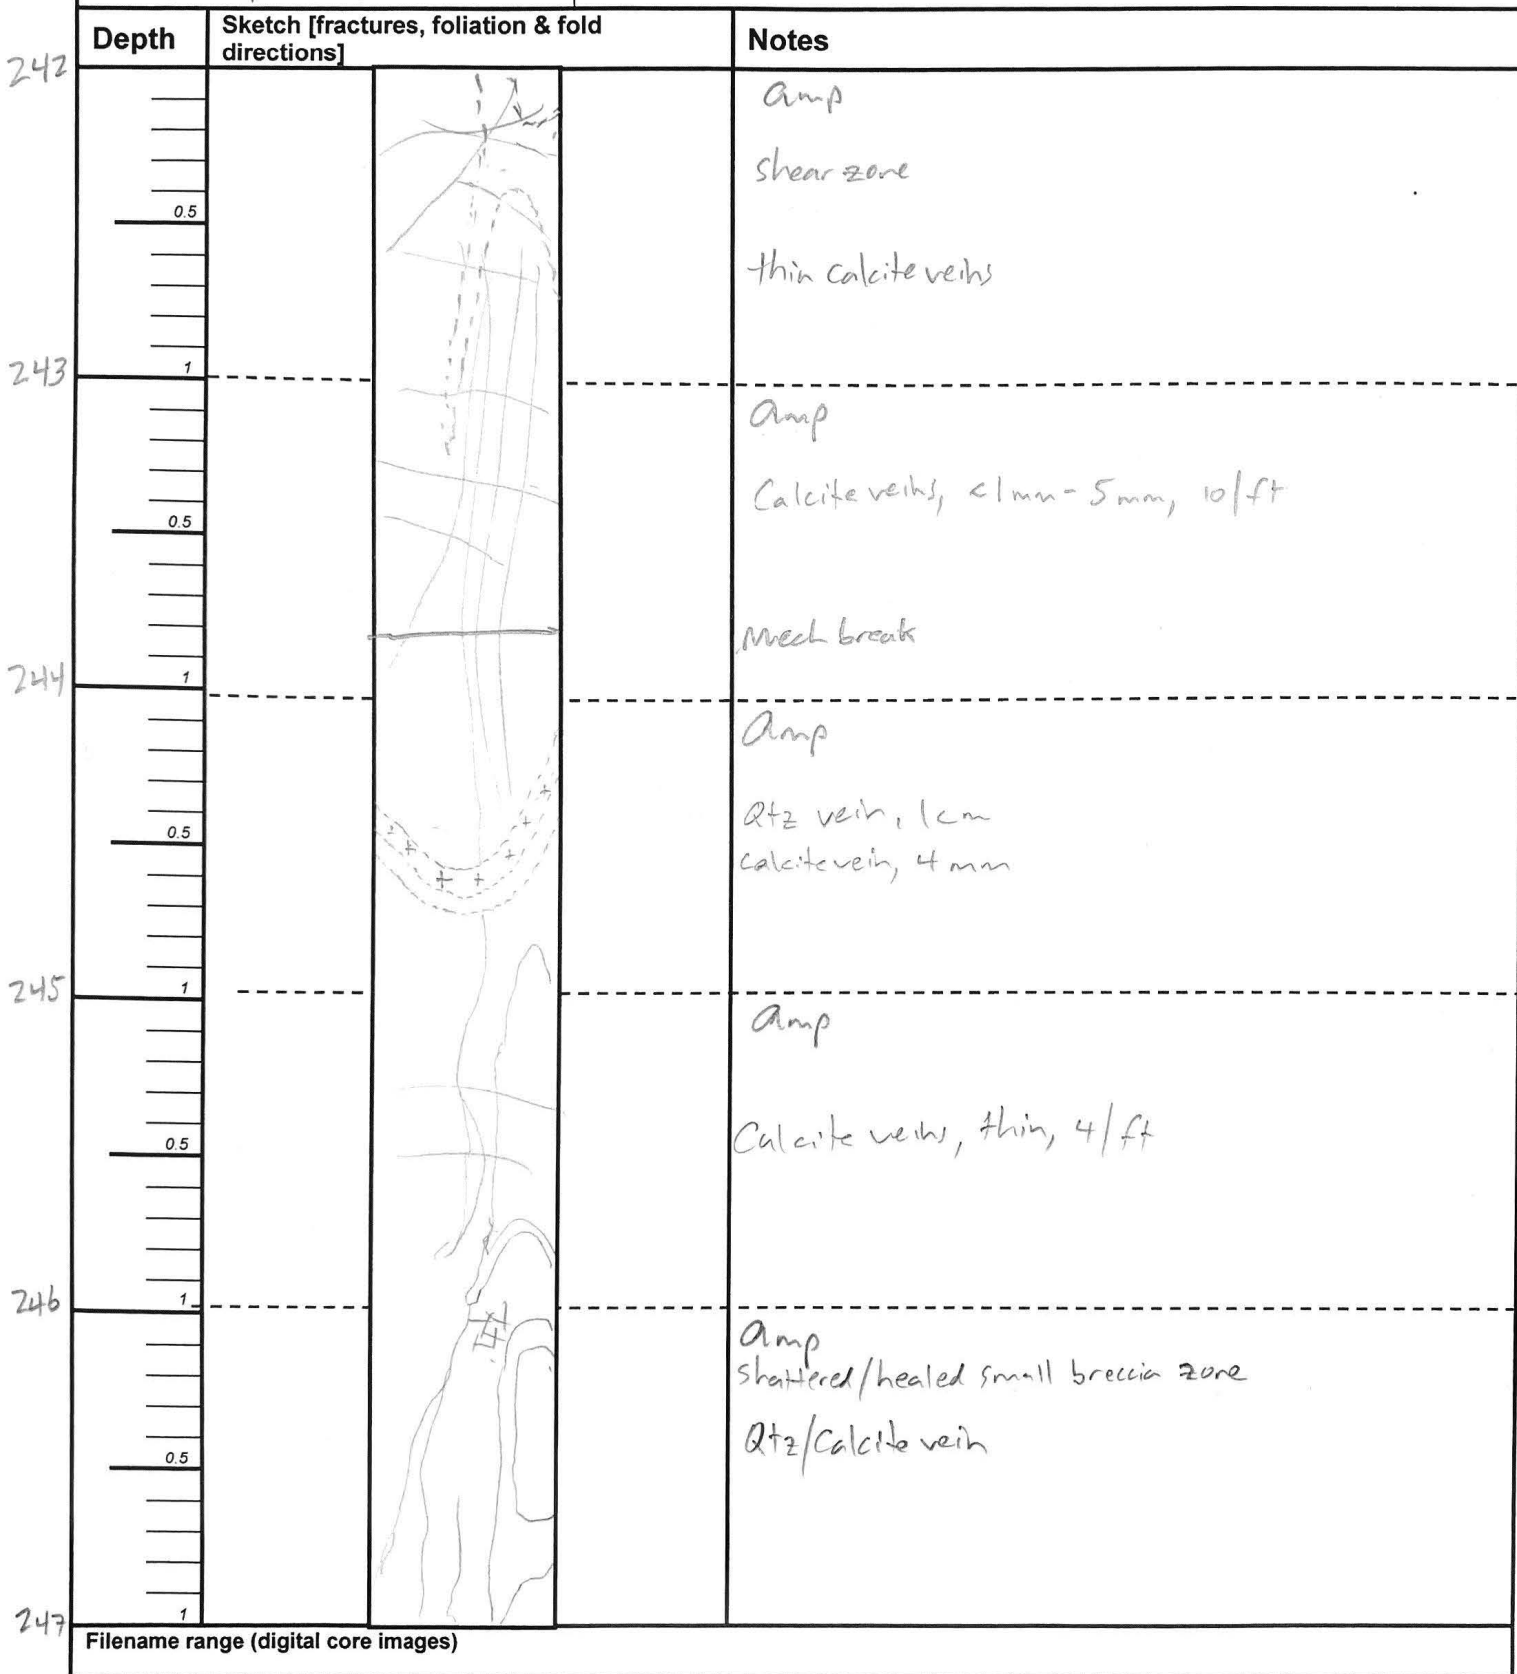 Depth
Sketch [fractures, foliation & fold
directions]
Notes
242
amp
shear zone
0.5
thin calcite veins
243
1
amp
Calcite veins, <1mm - 5mm, 10/ft
0.5
Mech break
244
1
Amp
Qtz vein, 1cm
0.5
calcite vein, 4mm
245
1
amp
Calcite veins, thin, 4/ft
0.5
246
1
amp
shattered/healed small breccia zone
Qtz/Calcite vein
0.5
247
1
Filename range (digital core images)